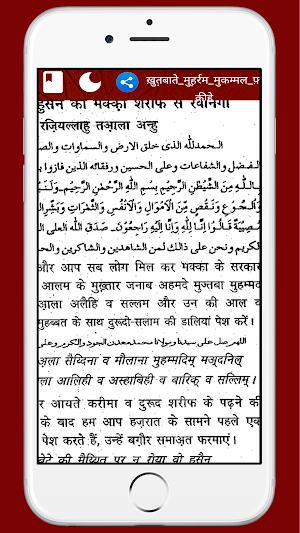 ख़ुतबाते_मुहर्रम_मुकम्मल_फ़
कीहे
हुसैन की मक्का शरीफ से रवानगी
रज़ियल्लाहु तआ़ला अन्हु
الحمدلله الذی خلق الارض والسماوات والص
لفضل والشفاعات وعلی الحسین ورفقائه الذین فازوا
بالله مِنَ الشَّيْطٰنِ الرَّجِيْمِ بِسْمِ اللهِ الرَّحْمٰنِ الرَّحِيْمِ وَلَنَبْ
وَالْجُوْعِ وَنَقْصٍ مِّنَ الْاَمْوَالِ وَالْاَنْفُسِ وَالثَّمَرٰتِ وَبَشِّرِ ال
مُصِيْبَةٌ قَالُوْا اِنَّا لِلّٰهِ وَاِنَّا اِلَيْهِ رَاجِعُوْنَ صَدَقَ اللهُ العلی ال
الكريم ونحن على ذالك لمن الشاهدين والشاكرين والح
और आप सब लोग मिल कर मक्का के सरकार
आलम के मुख़्तार जनाब अहमदे मुज्तबा मुहम्मद
आ़ला अलैहि व सल्लम और उन की आल व
मुहब्बत के साथ दुरूदो-सलाम की डालियां पेश करें।
اللهم صل على سيدنا ومولانا محمد معدن الجود والكرم وعلى
अ़ला सैय्यिदिना व मौलाना मुहम्मदिम् मअ़्दनिल्
अ़ला आलिही व अस्हाबिही व बारिक् व सल्लिम्।
र आयते करीमा व दुरूद शरीफ के पढ़ने की
के बाद हम आप हज़रात के सामने पहले एक
पेश करते हैं, उन्हें बग़ौर समाअ़त फरमाएं।
बेटे की मैय्यित पर न रोया वो हुसैन